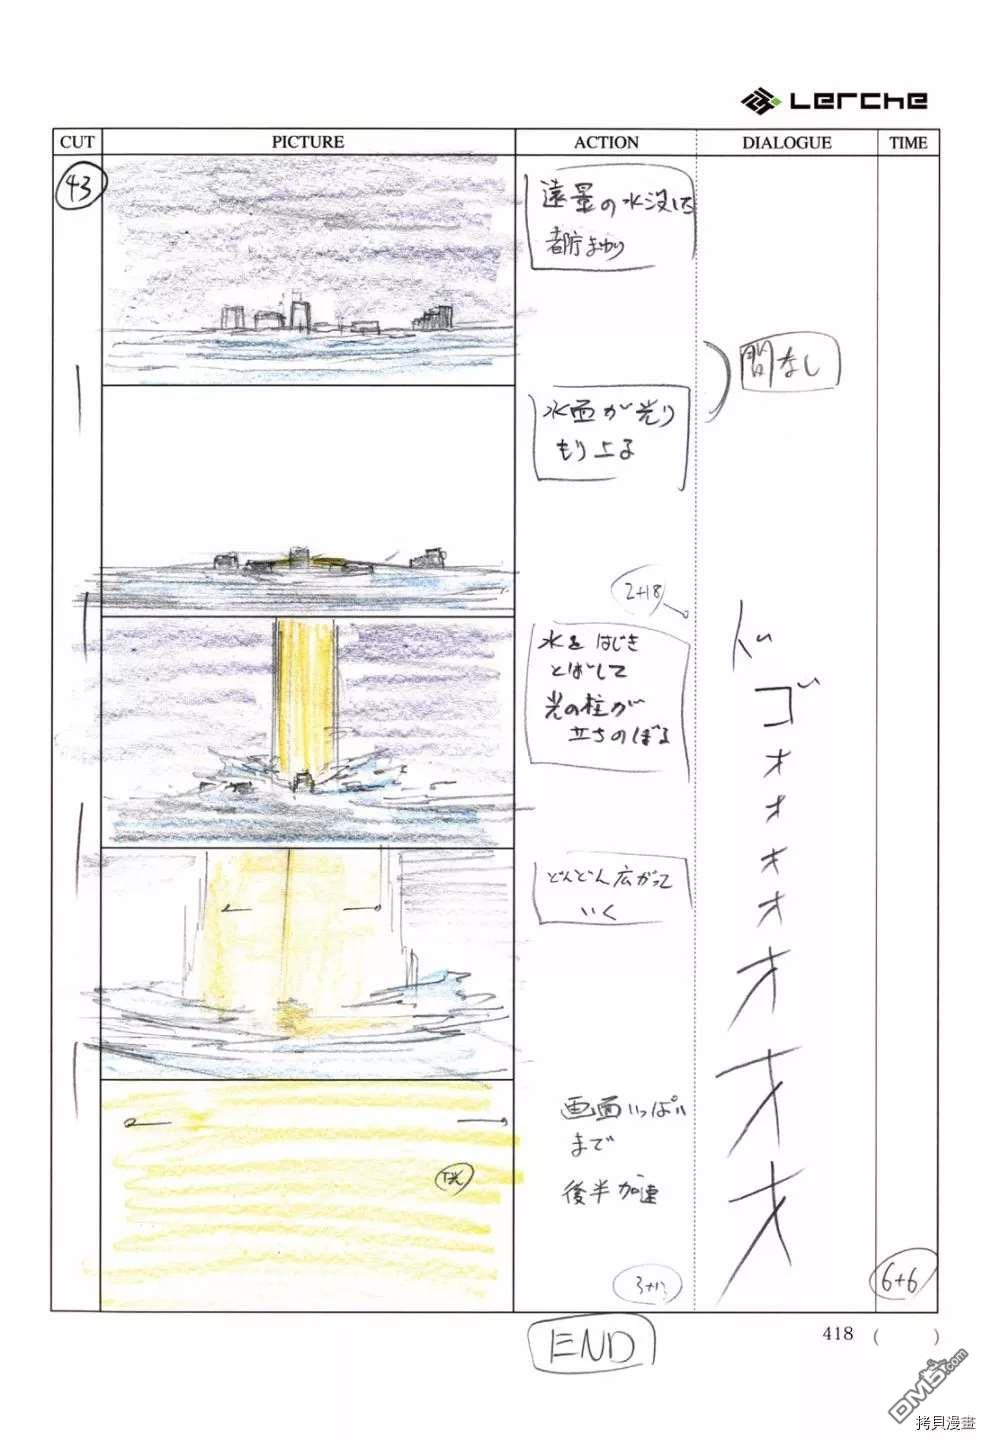 Lerche
CUT PICTURE ACTION DIALOGUE TIME
43
遠景の水没した
都庁まわり
間なし
水面が光り
もり上る
2+18
水をはじき
とばして
光の柱が
立ちのぼる
ド
ゴ
オ
オ
オ
オ
オ
オ
オ
どんどん広がって
いく
画面いっぱい
まで
後半加速
T光
6+6
END
418 ( )
DM5.com
拷貝漫畫